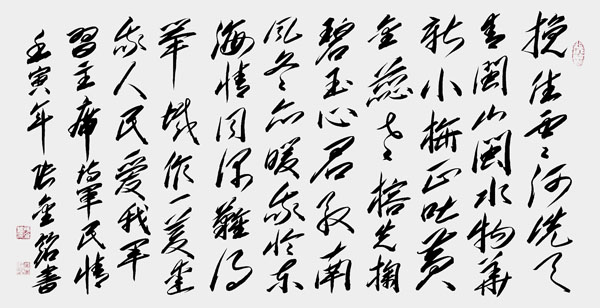 挽住云河洗天
青闽山闽水物华
新小梅正吐黄
金蕊老榕先掬
碧玉心君驭南
风冬亦暖我临东
海情同深难得
举城作一庆爱
我人民爱我军
习主席诗军民情
壬寅年张金书